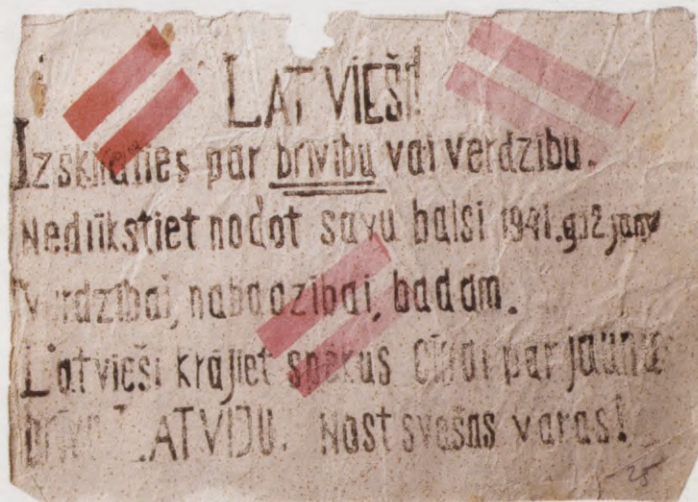 LATVIEŠI!
Izšķiraties par brīvību vai verdzību.
Nedrīkstiet nodot savu balsi 1941. g. 12 janv
Verdzībai, nabadzībai, badam.
Latvieši krājiet spēkus cīņai par jaunu
LATVIJU. Nost svešas varas!
25